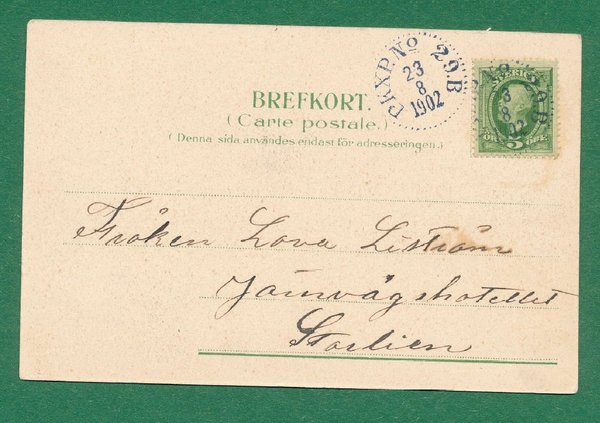 PKXP. No 29.B
23
8
1902
SVERIGE
BREFKORT.
(Carte postale.)
(Denna sida användes endast för adresseringen.)
Fröken Lova Liström
Järnvägshotellet
Storlien